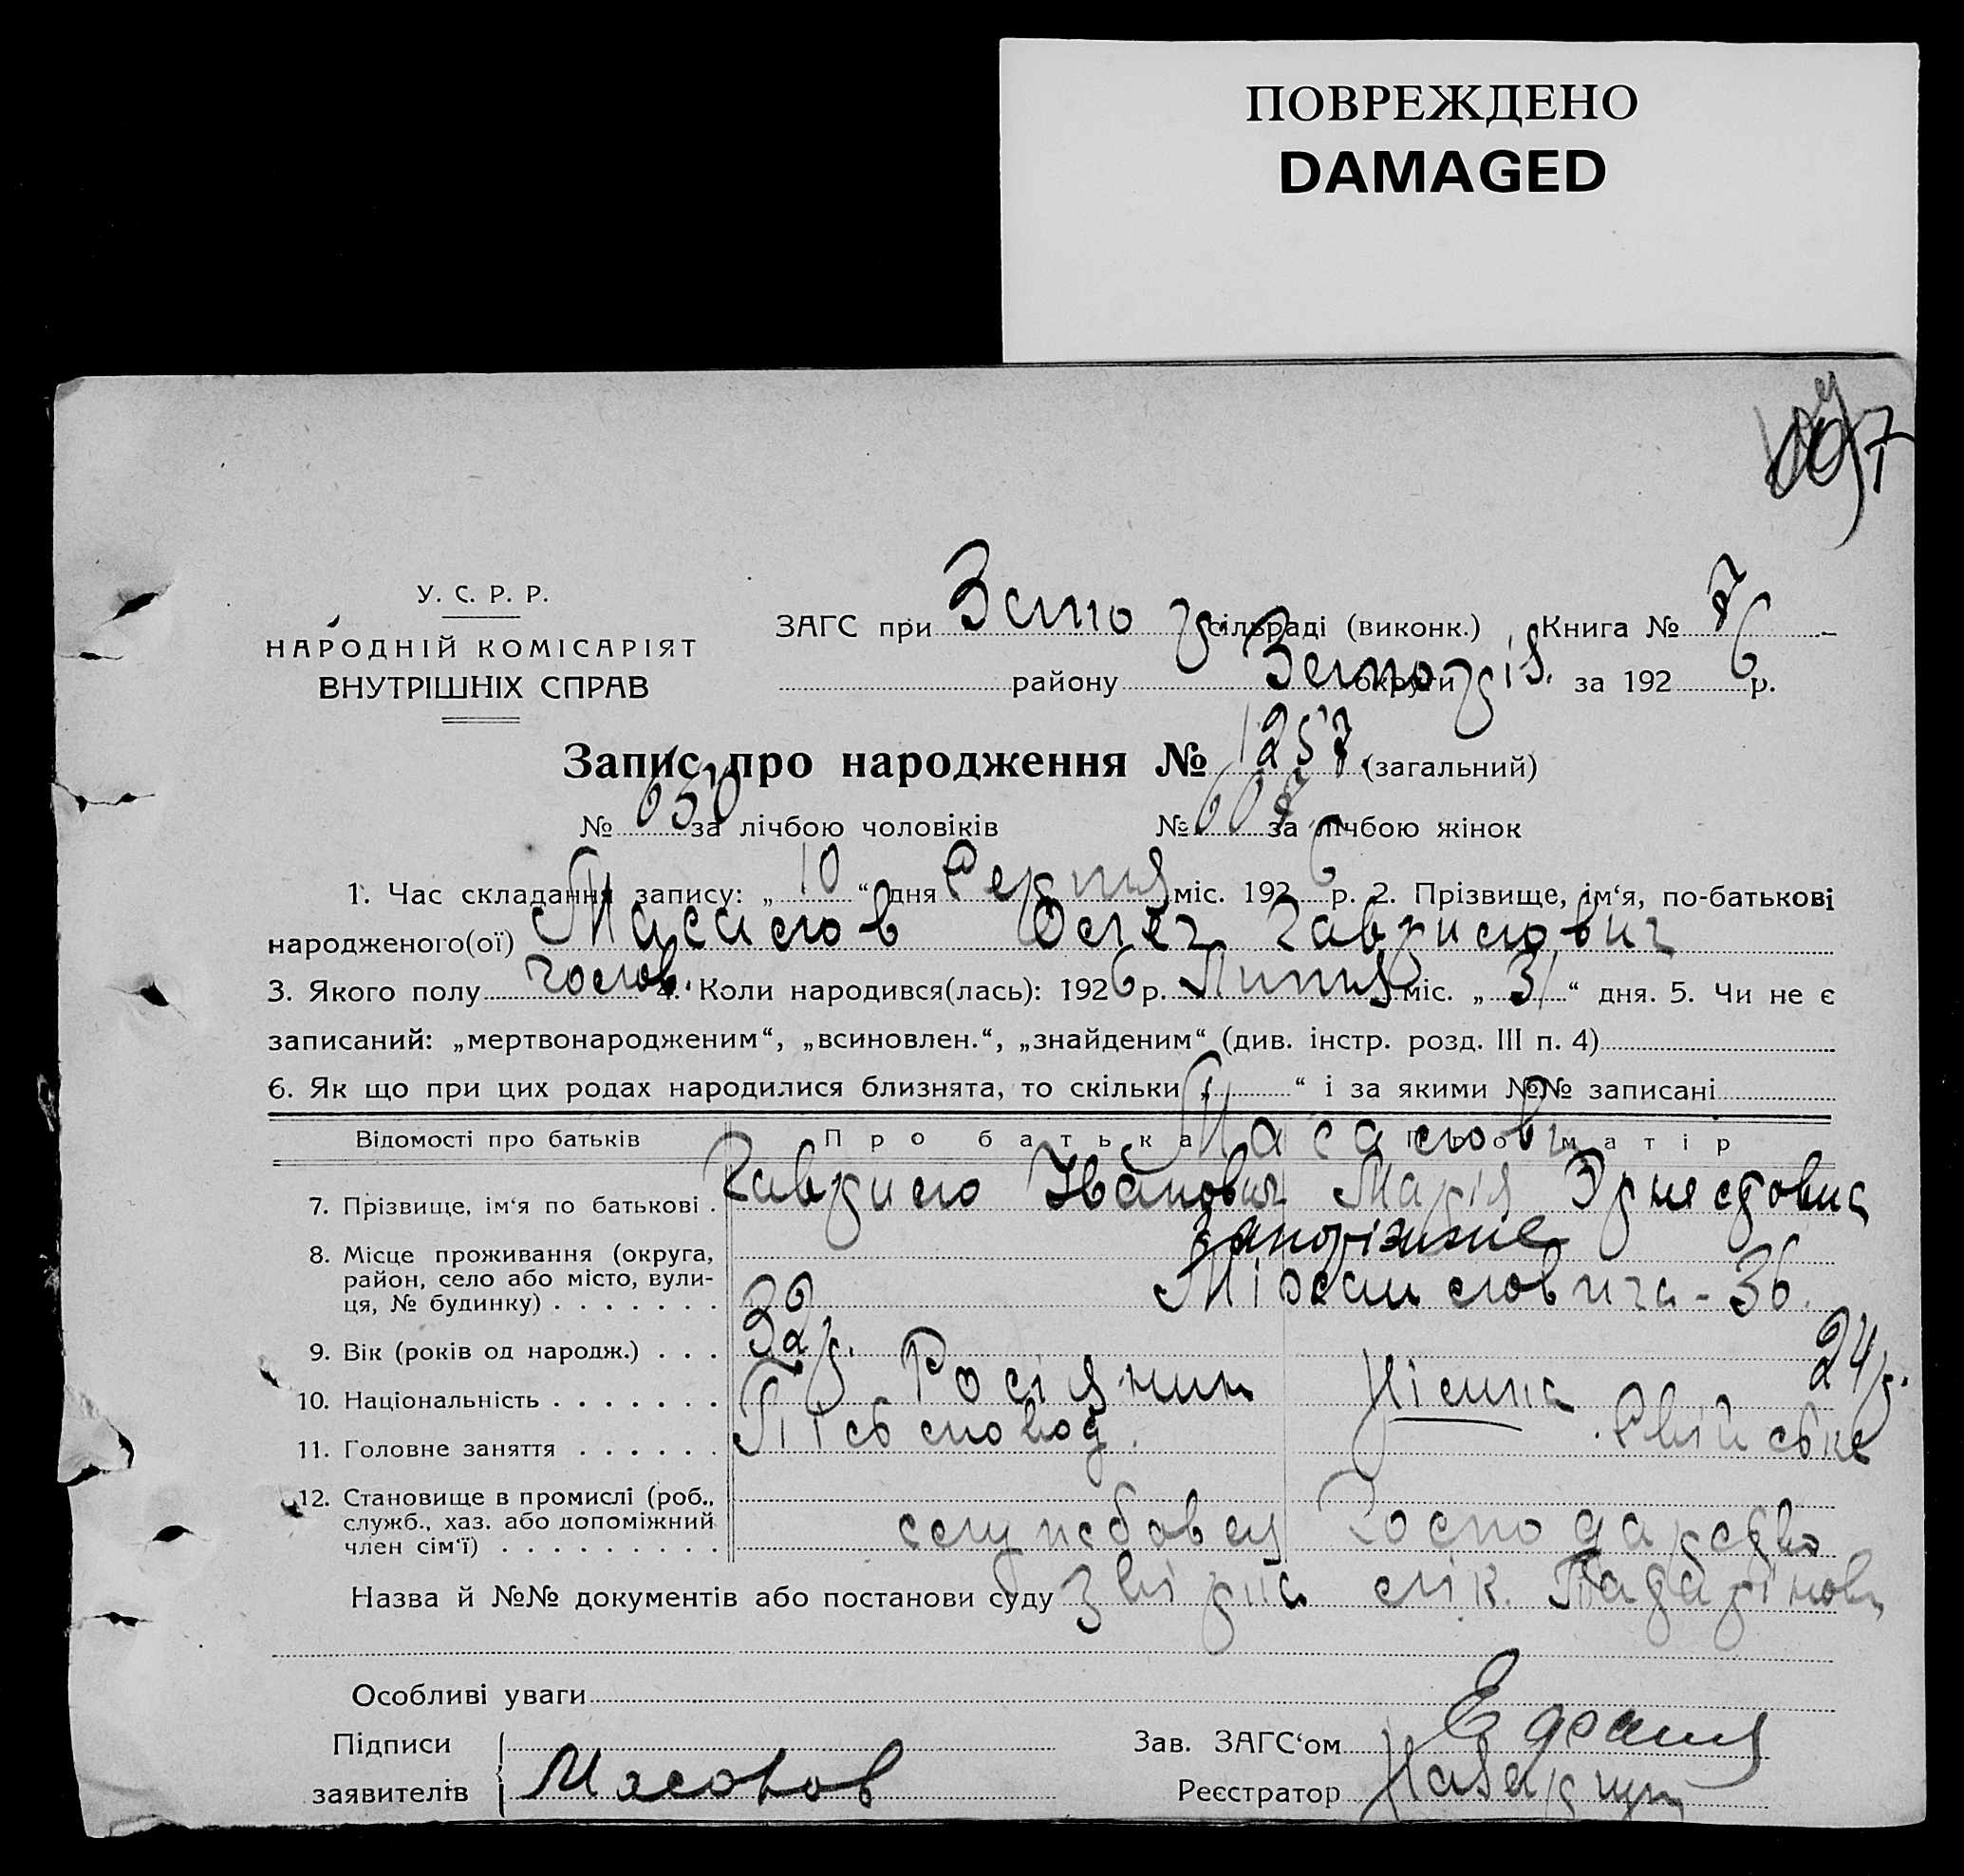 ПОВРЕЖДЕНО
DAMAGED
У. С. Р. Р.
НАРОДНІЙ КОМІСАРІЯТ
ВНУТРІШНІХ СПРАВ
ЗАГС при сільраді (виконк.) Книга №
району округи за 1926 р.
Запис про народження № 1257 (загальний)
№ 650 за лічбою чоловіків № 607 за лічбою жінок
1. Час складання запису: „ 10 “ дня Серпня міс. 1926 р. 2. Прізвище, ім‘я, по-батькові
народженого(ої) Гаврилович
3. Якого полу чолов. 4. Коли народився(лась): 1926 р. Липня міс. „ 31 “ дня. 5. Чи не є
записаний: „мертвонародженим“, „всиновлен.“, „знайденим“ (див. інстр. розд. III п. 4)
6. Як що при цих родах народилися близнята, то скільки „ “ і за якими №№ записані
Відомості про батьків Про батька Про матір
7. Прізвище, ім‘я по батькові . Гаврило Іванович Марія Эрнестовна
8. Місце проживання (округа, Запоріжжє
район, село або місто, вули-
ця, № будинку) . . . . . . . 36.
9. Вік (років од народж.) . . . 32 р. 24 р.
10. Національність . . . . . . . Росіянин Німка
11. Головне заняття . . . . . . Свійське
12. Становище в промислі (роб.,
служб., хаз. або допоміжний службовец Господарство
член сім‘ї) . . . . . . . . .
Назва й №№ документів або постанови суду лік.
Особливі уваги
Підписи Зав. ЗАГС‘ом
заявителів Реєстратор